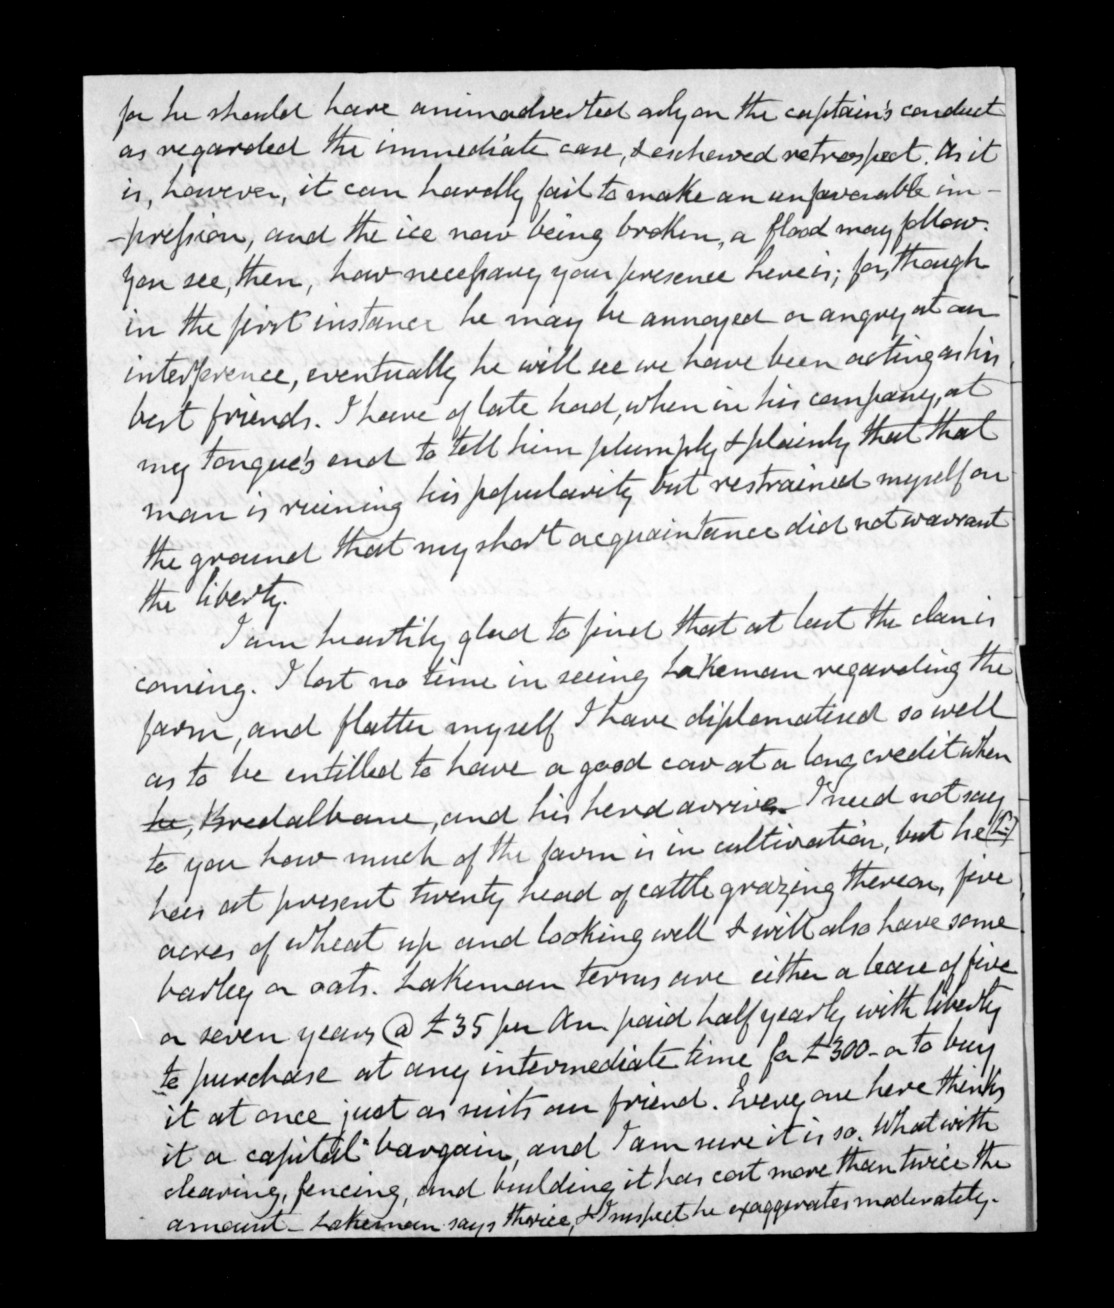 for he should have animadverted only on the captain's conduct
as regarded the immediate case, & eschewed retrospect. As it
is, however, it can hardly fail to make an unfavorable im-
-pression, and the ice now being broken, a flood may follow.
You see, then, how necessary your presence here is; for, though
in the first instance he may be annoyed or angry at our
interference, eventually he will see we have been acting as his
best friends. I have of late had, when in his company, at
my tongue's end to tell him plumply & plainly that that
man is ruining his popularity but restrained myself on
the ground that my short acquaintance did not warrant
the liberty.
I am heartily glad to find that at last the clan is
coming. I lost no time in seeing Lakeman regarding the
farm, and flatter myself I have diplomatised so well
as to be entitled to have a good cow at a long credit when
he, Bredalbane, and his herd arrive. I need not say
to you how much of the farm is in cultivation, but he (L:)
has at present twenty head of cattle grazing thereon, five
acres of wheat up and looking well & will also have some
barley or oats. Lakeman terms are either a lease of five
or seven years @ £35 per An paid half yearly with liberty
to purchase at any intermediate time for £300 - or to buy
it at once just as suits our friend. Every one here thinks
it a capital bargain, and I am sure it is so. What with
clearing, fencing, and building it has cost more than twice the
amount - Lakeman says thrice, & I suspect he exaggerates moderately.